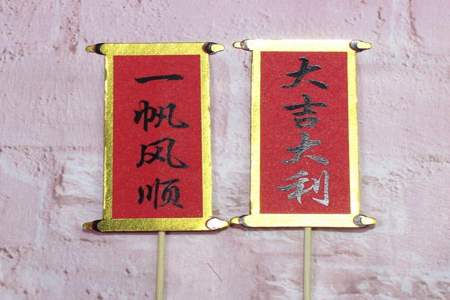 一帆风顺
大吉大利